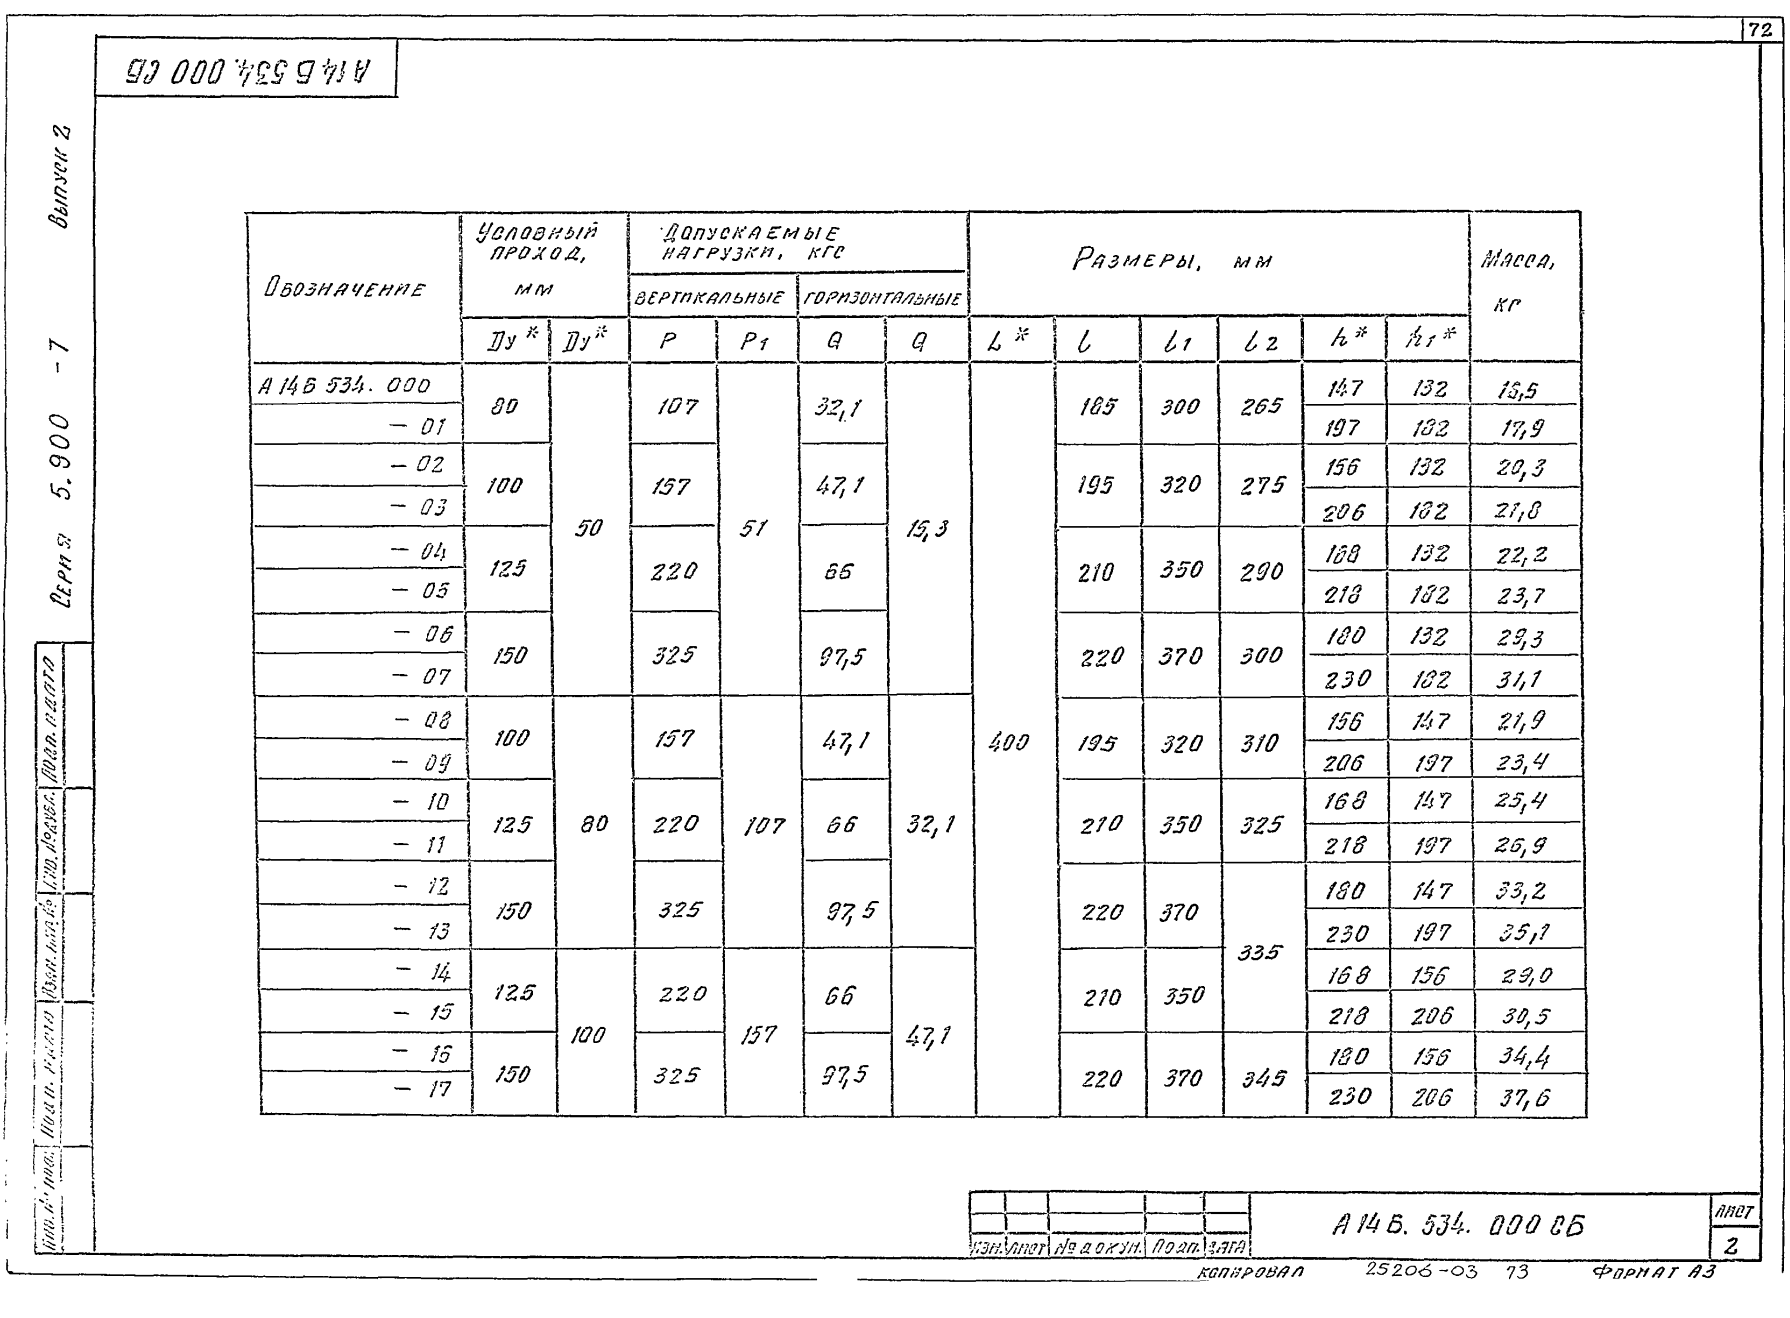 72
А14Б 534. 000 СБ
Серия 5.900 -7 Выпуск 2
Обозначение
Условный проход, мм
Допускаемые нагрузки, кгс
Размеры, мм
Масса, кг
вертикальные
горизонтальные
Dу* Dу* P P1 Q Q L* l l1 l2 h* h1*
А14Б 534. 000 80 50 107 51 32,1 15,3 400 185 300 265 147 132
- 01 197 182 17,9
- 02 100 157 47,1 195 320 275 156 132 20,3
- 03 206 182 21,8
- 04 125 220 66 210 350 290 168 132 22,2
- 05 218 182 23,7
- 06 150 325 97,5 220 370 300 180 132 29,3
- 07 230 182 31,1
- 08 100 80 157 107 47,1 32,1 195 320 310 156 147 21,9
- 09 206 197 23,4
- 10 125 220 66 210 350 325 168 147 25,4
- 11 218 197 26,9
- 12 150 325 97,5 220 370 335 180 147 33,2
- 13 230 197 35,1
- 14 125 100 220 157 66 47,1 210 350 168 156 29,0
- 15 218 206 30,5
- 16 150 325 97,5 220 370 345 180 156 34,4
- 17 230 206 37,6
Инв. № подл. Подп. и дата Взам. инв. № Инв. № дубл. Подп. и дата
Изм. Лист № докум. Подп. Дата
А14Б. 534. 000 СБ
Лист
2
Копировал 25206-03 73 Формат А3